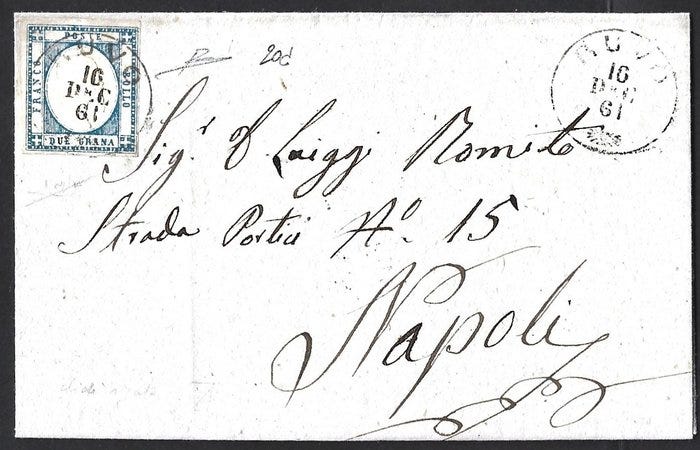 POSTE
FRANCO
BOLLO
DUE GRANA
RUVO
16
DEC
61
20d
RUVO
16
DEC
61
Sig.r D Luiggi Romito
Strada Portici No. 15
Napoli